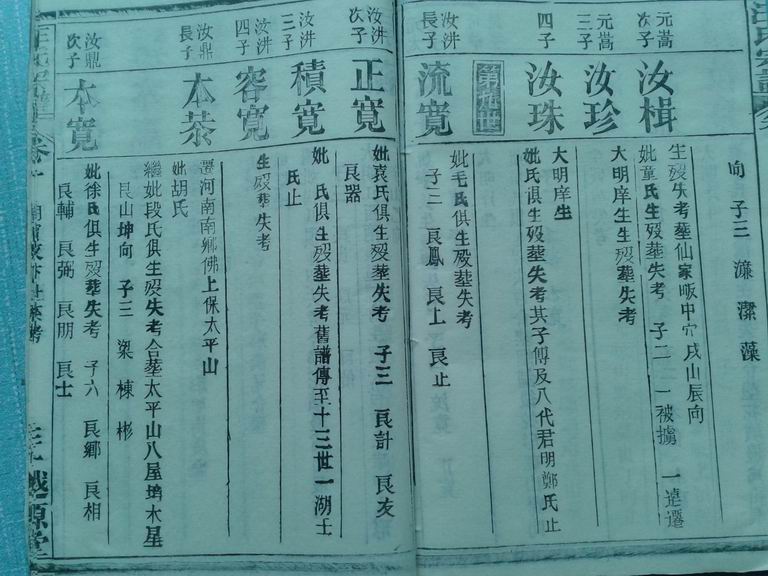 向 子三 濂 潔 藻
元嵩次子
汝楫
生歿失考塟仙家畈中穴戌山辰向
妣童氏生歿塟失考 子二 一被擄 一逹遷
元嵩三子
汝珍
大明庠生生歿塟失考
四子
汝珠
大明庠生
妣氏俱生歿塟失考其子傅及八代君明鄭氏止
第九世
汝洴長子
流寬
妣毛氏俱生歿塟失考
子三 良鳳 良上 良止
汝洴次子
正寬
妣袁氏俱生歿塟失考 子三 良計 良友
良器
汝洴三子
積寬
妣 氏俱生歿塟失考舊譜傳至十三世一湖王
氏止
汝洴四子
容寬
生歿塟失考
汝鼎長子
本恭
遷河南南鄉佛上保太平山
妣胡氏
繼妣段氏俱生歿失考合塟太平山八屋塆木星
艮山坤向 子三 梁 棟 彬
汝鼎次子
本寬
妣徐氏俱生歿塟失考 子六 良鄉 良相
良輔 良弼 良朋 良士
越源堂